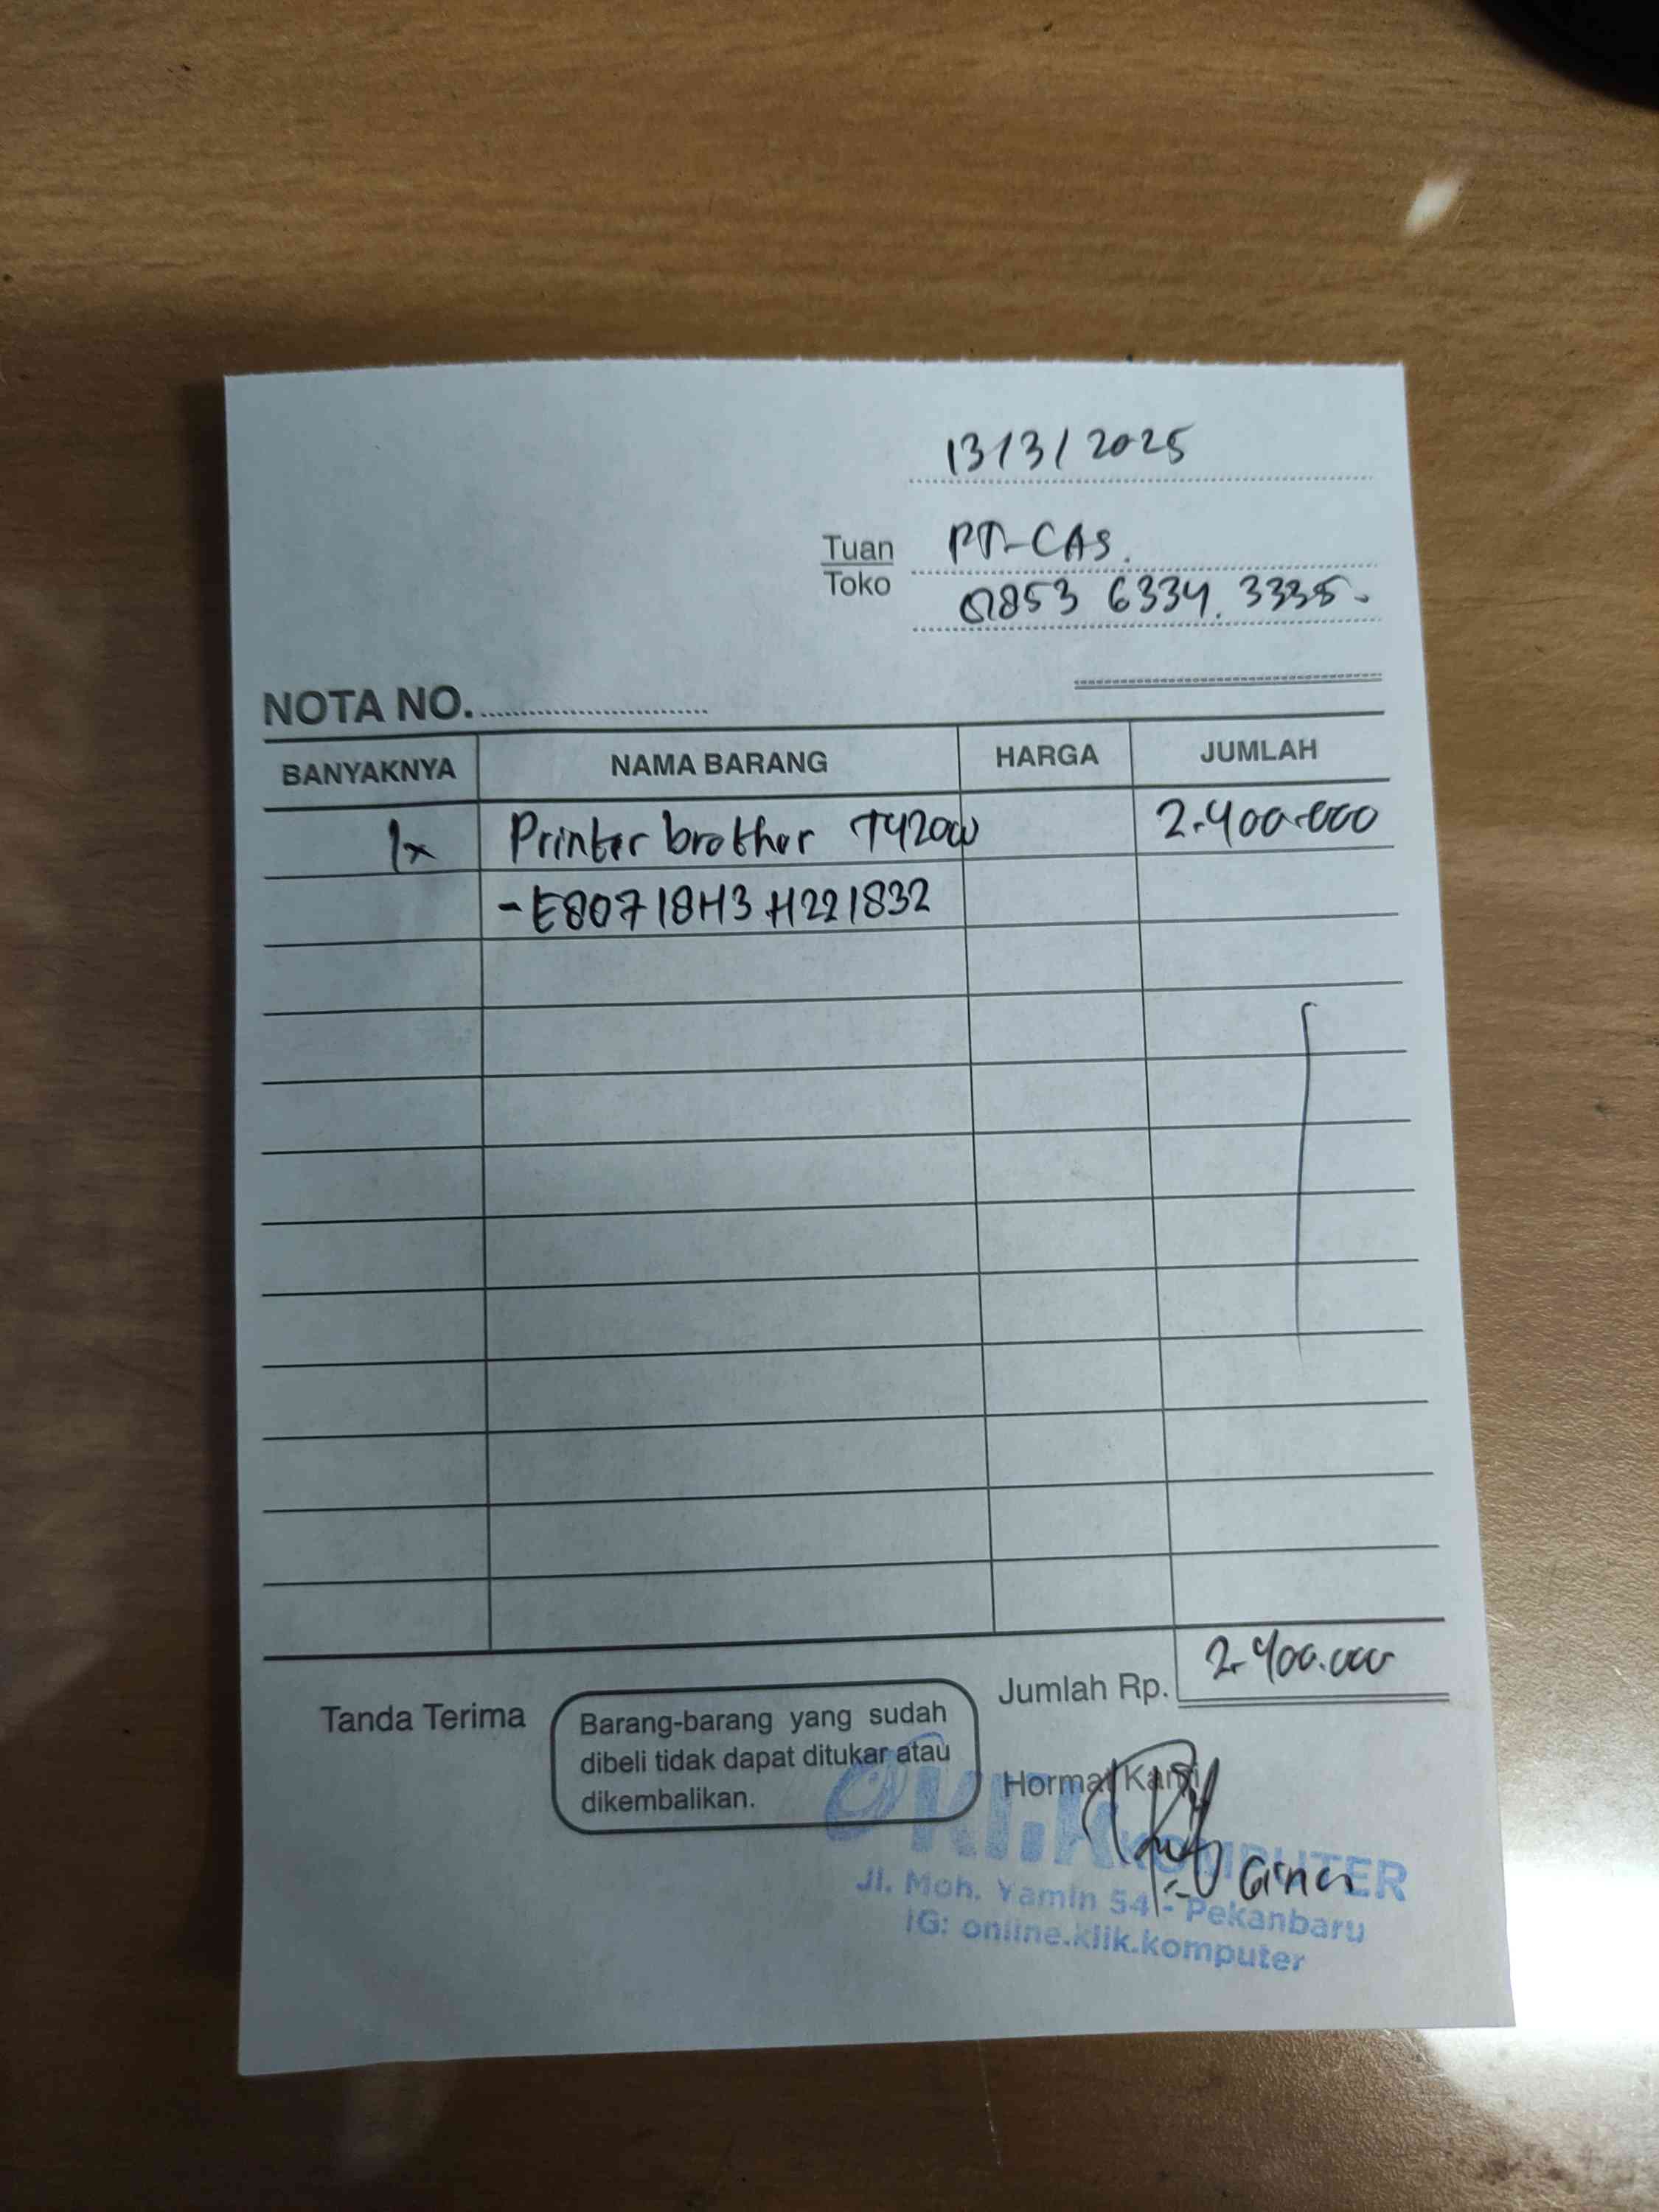 13/3/2025
Tuan
Toko
PT-CAS.
0853 6334. 3335-
NOTA NO.
BANYAKNYA NAMA BARANG HARGA JUMLAH
1x Printer brother T420W 2.400.000
-E80718H3H221832
2.400.000
Jumlah Rp.
Tanda Terima
Barang-barang yang sudah
dibeli tidak dapat ditukar atau
dikembalikan.
Hormat Kami
KLiK KOMPUTER
Jl. Moh. Yamin 54 - Pekanbaru
IG: online.klik.komputer